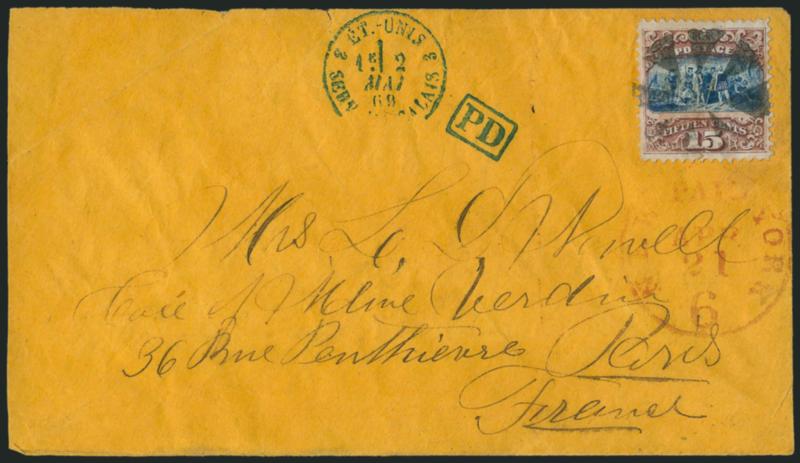 3 ET.-UNIS 3
SERV CALAIS
2
MAI
69
PD
POSTAGE
FIFTEEN CENTS
15
YORK
21
6
Mrs. L. L. Powell
Care of Mme Verdin
36 Rue Penthievre Paris
France